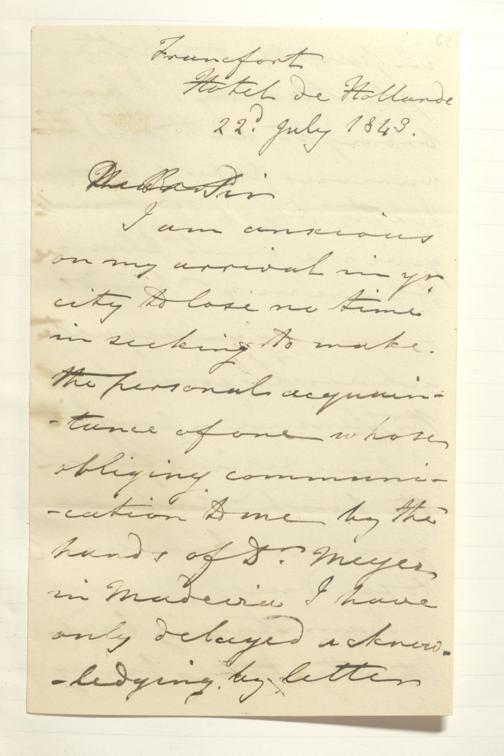 62
Francfort
Hotel de Hollande
22d. July 1843.
Sir
I am anxious
on my arrival in yr.
city to lose no time
in seeking to make
the personal acquain-
-tance of one whose
obliging communi-
-cation to me by the
hands of Dr. Meyer
in Madeira I have
only delayed acknow-
-ledging by letter